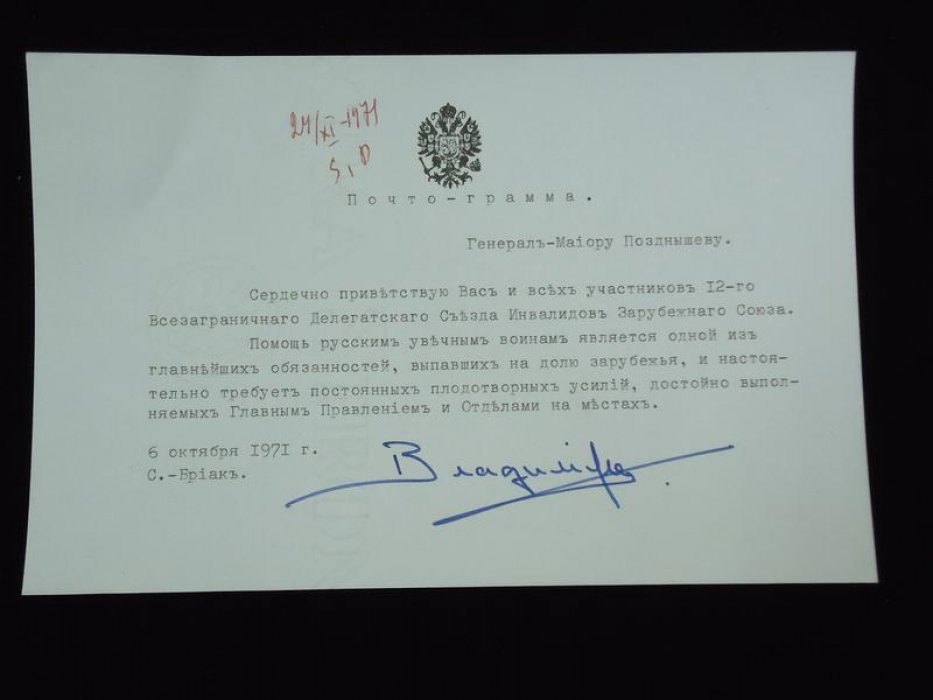 24/XI-1971
S.P
Почто-грамма.
Генералъ-Маіору Позднышеву.
Сердечно привѣтствую Васъ и всѣхъ участниковъ I2-го
Всезаграничнаго Делегатскаго Съѣзда Инвалидовъ Зарубежнаго Союза.
Помощь русскимъ увѣчнымъ воинамъ является одной изъ
главнѣйшихъ обязанностей, выпавшихъ на долю зарубежья, и настоя-
тельно требуетъ постоянныхъ плодотворныхъ усилій, достойно выпол-
няемыхъ Главнымъ Правленіемъ и Отдѣлами на мѣстахъ.
6 октября I97I г.
С.-Бріакъ.
Владиміръ